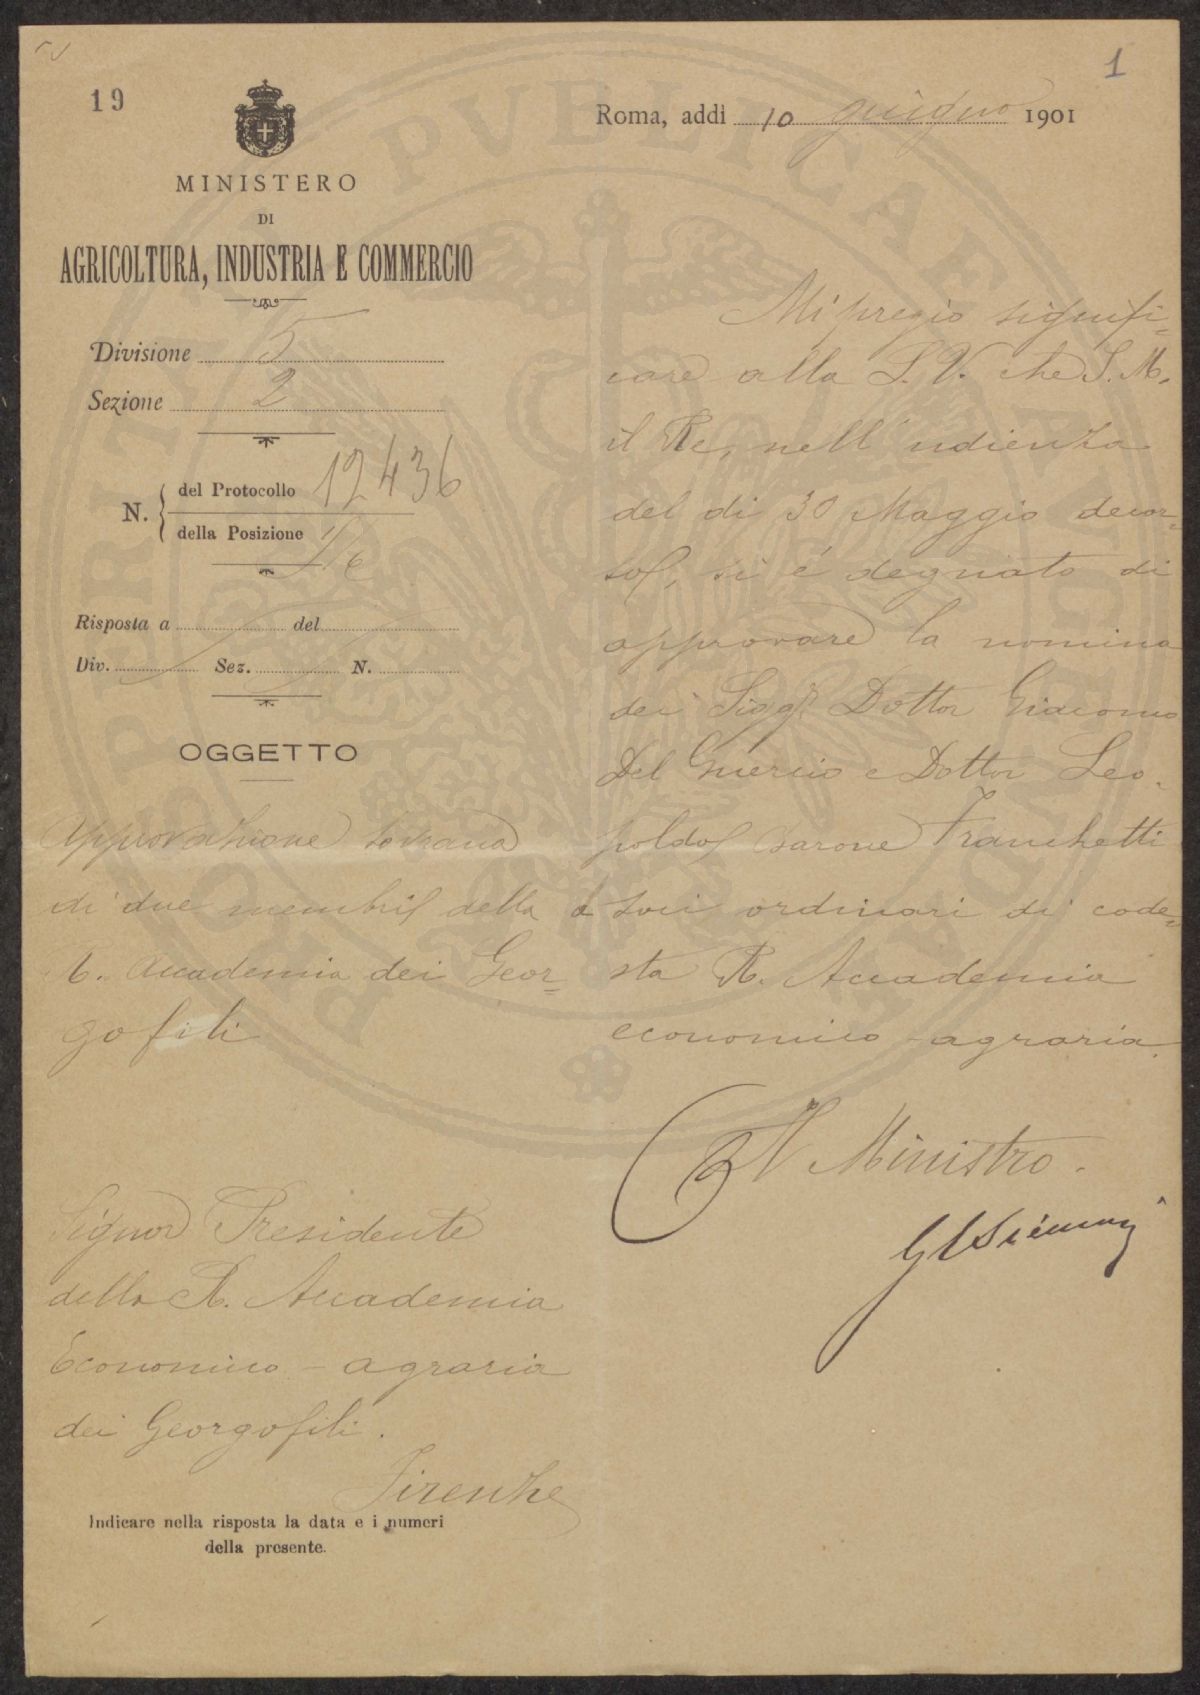 1
19
Roma, addì 10 giugno 1901
MINISTERO
DI
AGRICOLTURA, INDUSTRIA E COMMERCIO
Divisione 5
Sezione 2
N. del Protocollo 12436
della Posizione
Risposta a del
Div. Sez. N.
OGGETTO
Approvazione sovrana
di due membri della
R. Accademia dei Geor-
gofili
Signor Presidente
della R. Accademia
Economico-agraria
dei Georgofili.
Firenze
Indicare nella risposta la data e i numeri
della presente.
Mi pregio signifi-
care alla S. V. che S. M.
il Re, nell'udienza
del di 30 Maggio decor-
so, si é degnato di
approvare la nomina
dei Sigg.i Dottor Giacomo
Del Guercio e Dottor Leo-
poldo barone Franchetti
a soci ordinari di code-
sta R. Accademia
economico-agraria.
Il Ministro.
PROSPERITATI PVBLICAE AVGENDAE